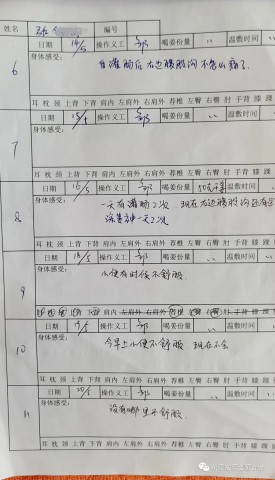 姓名 编号
日期 14/5 操作义工 郭 喝姜份量 温敷时间
6 身体感受:
自灌肠后 右边腹股沟不怎么痛了.
耳 枕 颈 上背 下背 肩内 左肩外 右肩外 荐椎 左臀 右臀 肘 手背 膝 踝
日期 15/5 操作义工 郭 喝姜份量 温敷时间
7 身体感受:
耳 枕 颈 上背 下背 肩内 左肩外 右肩外 荐椎 左臀 右臀 肘 手背 膝 踝
日期 16/5 操作义工 郭 喝姜份量 温敷时间
8 身体感受:
一天有灌肠2次 现在右边腹股沟还有
一天2次
耳 枕 颈 上背 下背 肩内 左肩外 右肩外 荐椎 左臀 右臀 肘 手背 膝
日期 18/5 操作义工 郭 喝姜份量 温敷时间
9 身体感受:
小便有时候不舒服.
耳 枕 颈 上背 下背 肩内 左肩外 右肩外 荐椎 左臀 右臀 肘 手背 膝
日期 19/5 操作义工 郭 喝姜份量 温敷时间
10 身体感受:
今早上小便不舒服 现在不会
耳 枕 颈 上背 下背 肩内 左肩外 右肩外 荐椎 左臀 右臀 肘 手背 膝 踝
日期 20/5 操作义工 郭 喝姜份量 温敷时间
11 身体感受:
没有哪里不舒服.
耳 枕 颈 上背 下背 肩内 左肩外 右肩外 荐椎 左臀 右臀 肘 手背 膝